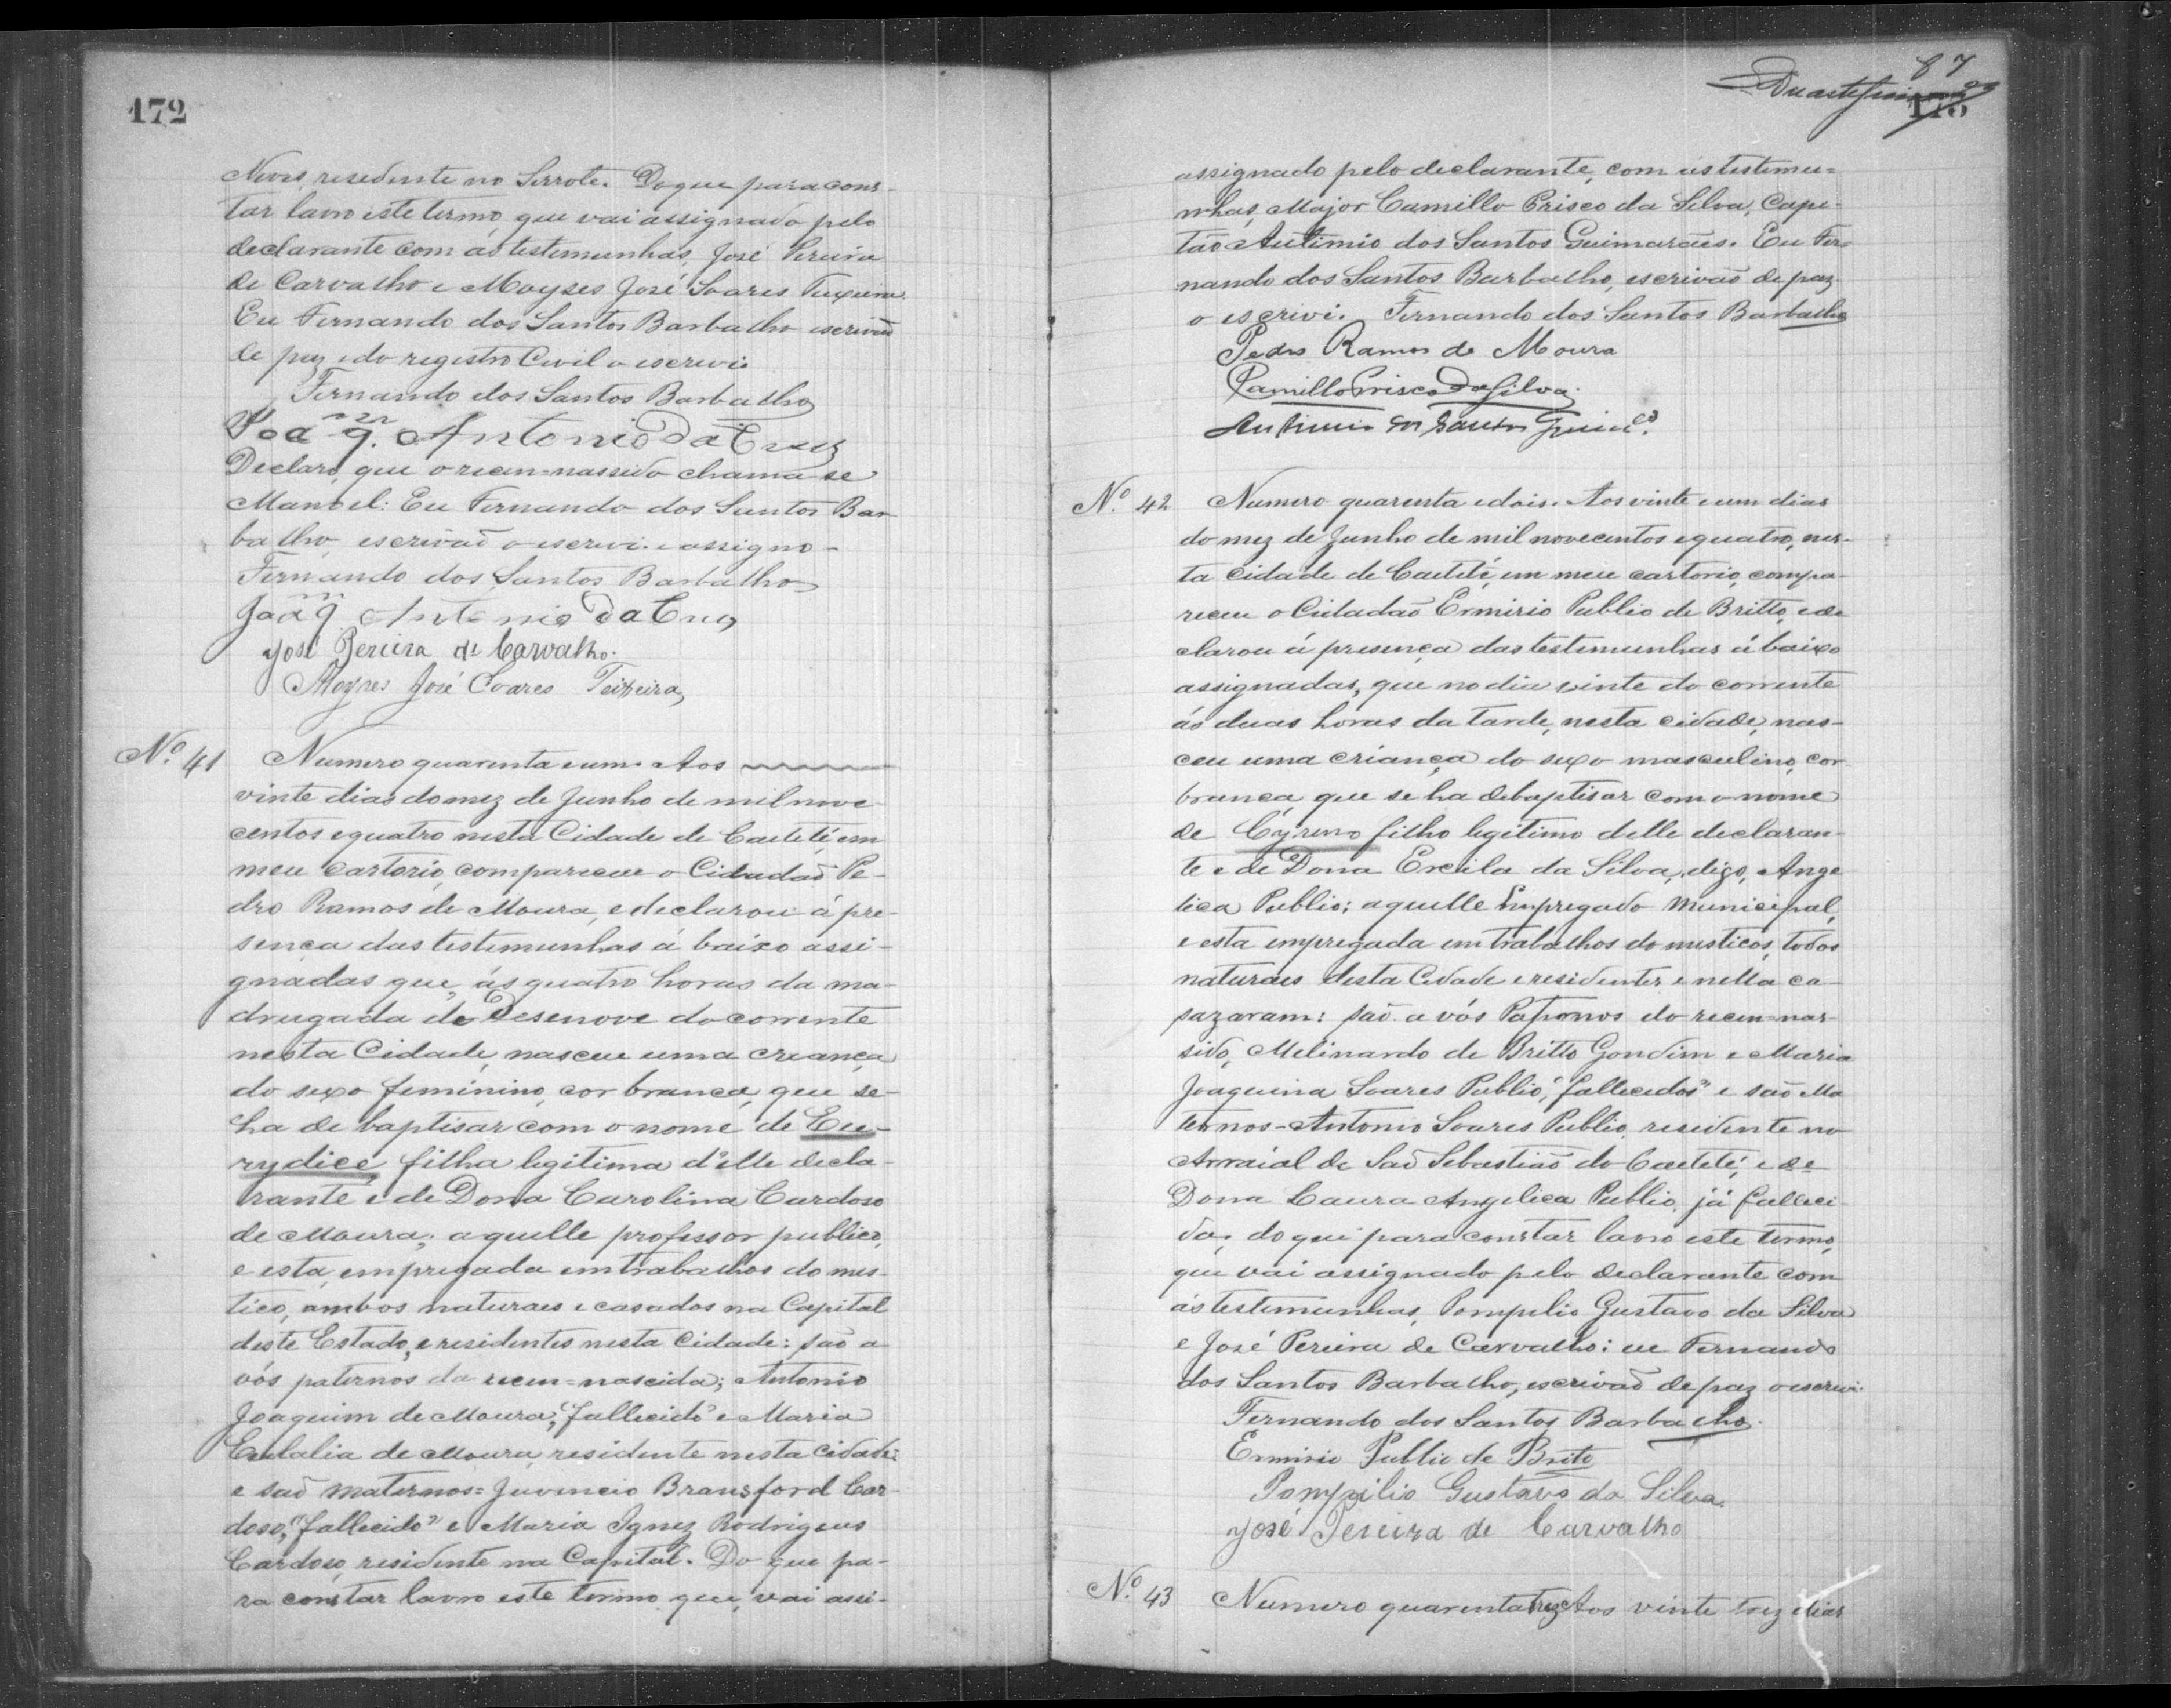 172
Neves, residente no Serrote. Do que para cons-
tar lavro este termo, que vai assignado pelo
declarante com as testemunhas, José Pereira
de Carvalho e Moyses José Soares Teixeira.
Eu Fernando dos Santos Barbalho escrivão
de paz e do registro Civil o escrevi.
Fernando dos Santos Barbalho
Joaqm. Antonio da Cruz
Declaro, que o recem=nassido chama-se
Manoel: Eu Fernando dos Santos Bar-
balho, escrivão o escrevi e assigno-
Fernando dos Santos Barbalho
Joaqm Antonio da Cruz
José Pereira de Carvalho.
Moyses José Soares Teixeira,
No. 41 Numero quarenta e um. Aos
vinte dias do mez de Junho de mil nove
centos e quatro nesta Cidade de Caeteté, em
meu cartorio, compareceu o Cidadão Pe-
dro Ramos de Moura, e declarou á pre-
sença das testemunhas á baixo assi-
gnadas que, ás quatro horas da ma-
drugada de Desenove do corrente
nesta Cidade, nasceu uma creança
do sexo feminino, cor branca, que se-
ha de baptisar com o nome de Eu-
rydice filha legitima d'elle decla-
rante e de Dona Carolina Cardoso
de Moura; aquelle professor publico,
e esta, empregada em trabalhos domes-
tico, ambos naturaes e casados na Capital
deste Estado, e residentes nesta Cidade: são a
vós paternos da recem=nascida; Antonio
Joaquim de Moura, "fallecido" e Maria
Eulalia de Moura, residente nesta cidade:
e são maternos= Juvencio Bransford Car-
doso, "fallecido" e Maria Ignez Rodrigues
Cardoso, residente na Capital. Do que pa-
ra constar lavro este termo que, vai assi-
87
173
assignado pelo declarante, com as testemu=
nhas, Major Camillo Prisco da Silva, Capi-
tão Autimio dos Santos Guimarães. Eu Fer=
nando dos Santos Barbalho, escrivão de paz
o escrivi. Fernando dos Santos Barbalho
Pedro Ramos de Moura
Camillo Prisco da Silva.
Autimio dos Santos Guimes.
No. 42 Numero quarenta e dois. Aos vinte e um dias
do mez de Junho de mil novecentos e quatro, nes-
ta cidade de Caeteté, em meu cartorio, compa-
receu o Cidadão Ermirio Publio de Britto, e de
clarou á presença das testemunhas á baixo
assignadas, que no dia vinte do corrente
ás duas horas da tarde, nesta cidade, nas-
ceu uma criança do sexo masculino, cor
branca, que se ha de baptisar com o nome
de Cyreno filho legitimo delle declaran-
te e de Dona Ercila da Silva, digo, Ange
lica Publio; aquelle Empregado Municipal,
e esta empregada em trabalhos domesticos, todos
naturaes desta Cidade e residentes e nella ca-
sazaram: são a vós Paternos do recem=nas-
sido, Melinardo de Britto Gondim e Maria
Joaquina Soares Publio, "fallecidos" e são Ma
ternos-Antonio Soares Publio, residente no
Arraial de São Sebastião do Caeteté, e de
Dona Laura Angelica Publio, já falleci-
da; do que para constar lavro este termo,
que vai assignado pelo declarante com
ás testemunhas, Pompilio Gustavo da Silva
e José Pereira de Carvalho: eu Fernando
dos Santos Barbalho, escrivão de paz o escrevi.
Fernando dos Santos Barbalho.
Ermirio Publio de Brito
Pompilio Gustavo da Silva.
José Pereira de Carvalho
No. 43 Numero quarenta trez Aos vinte trez dias